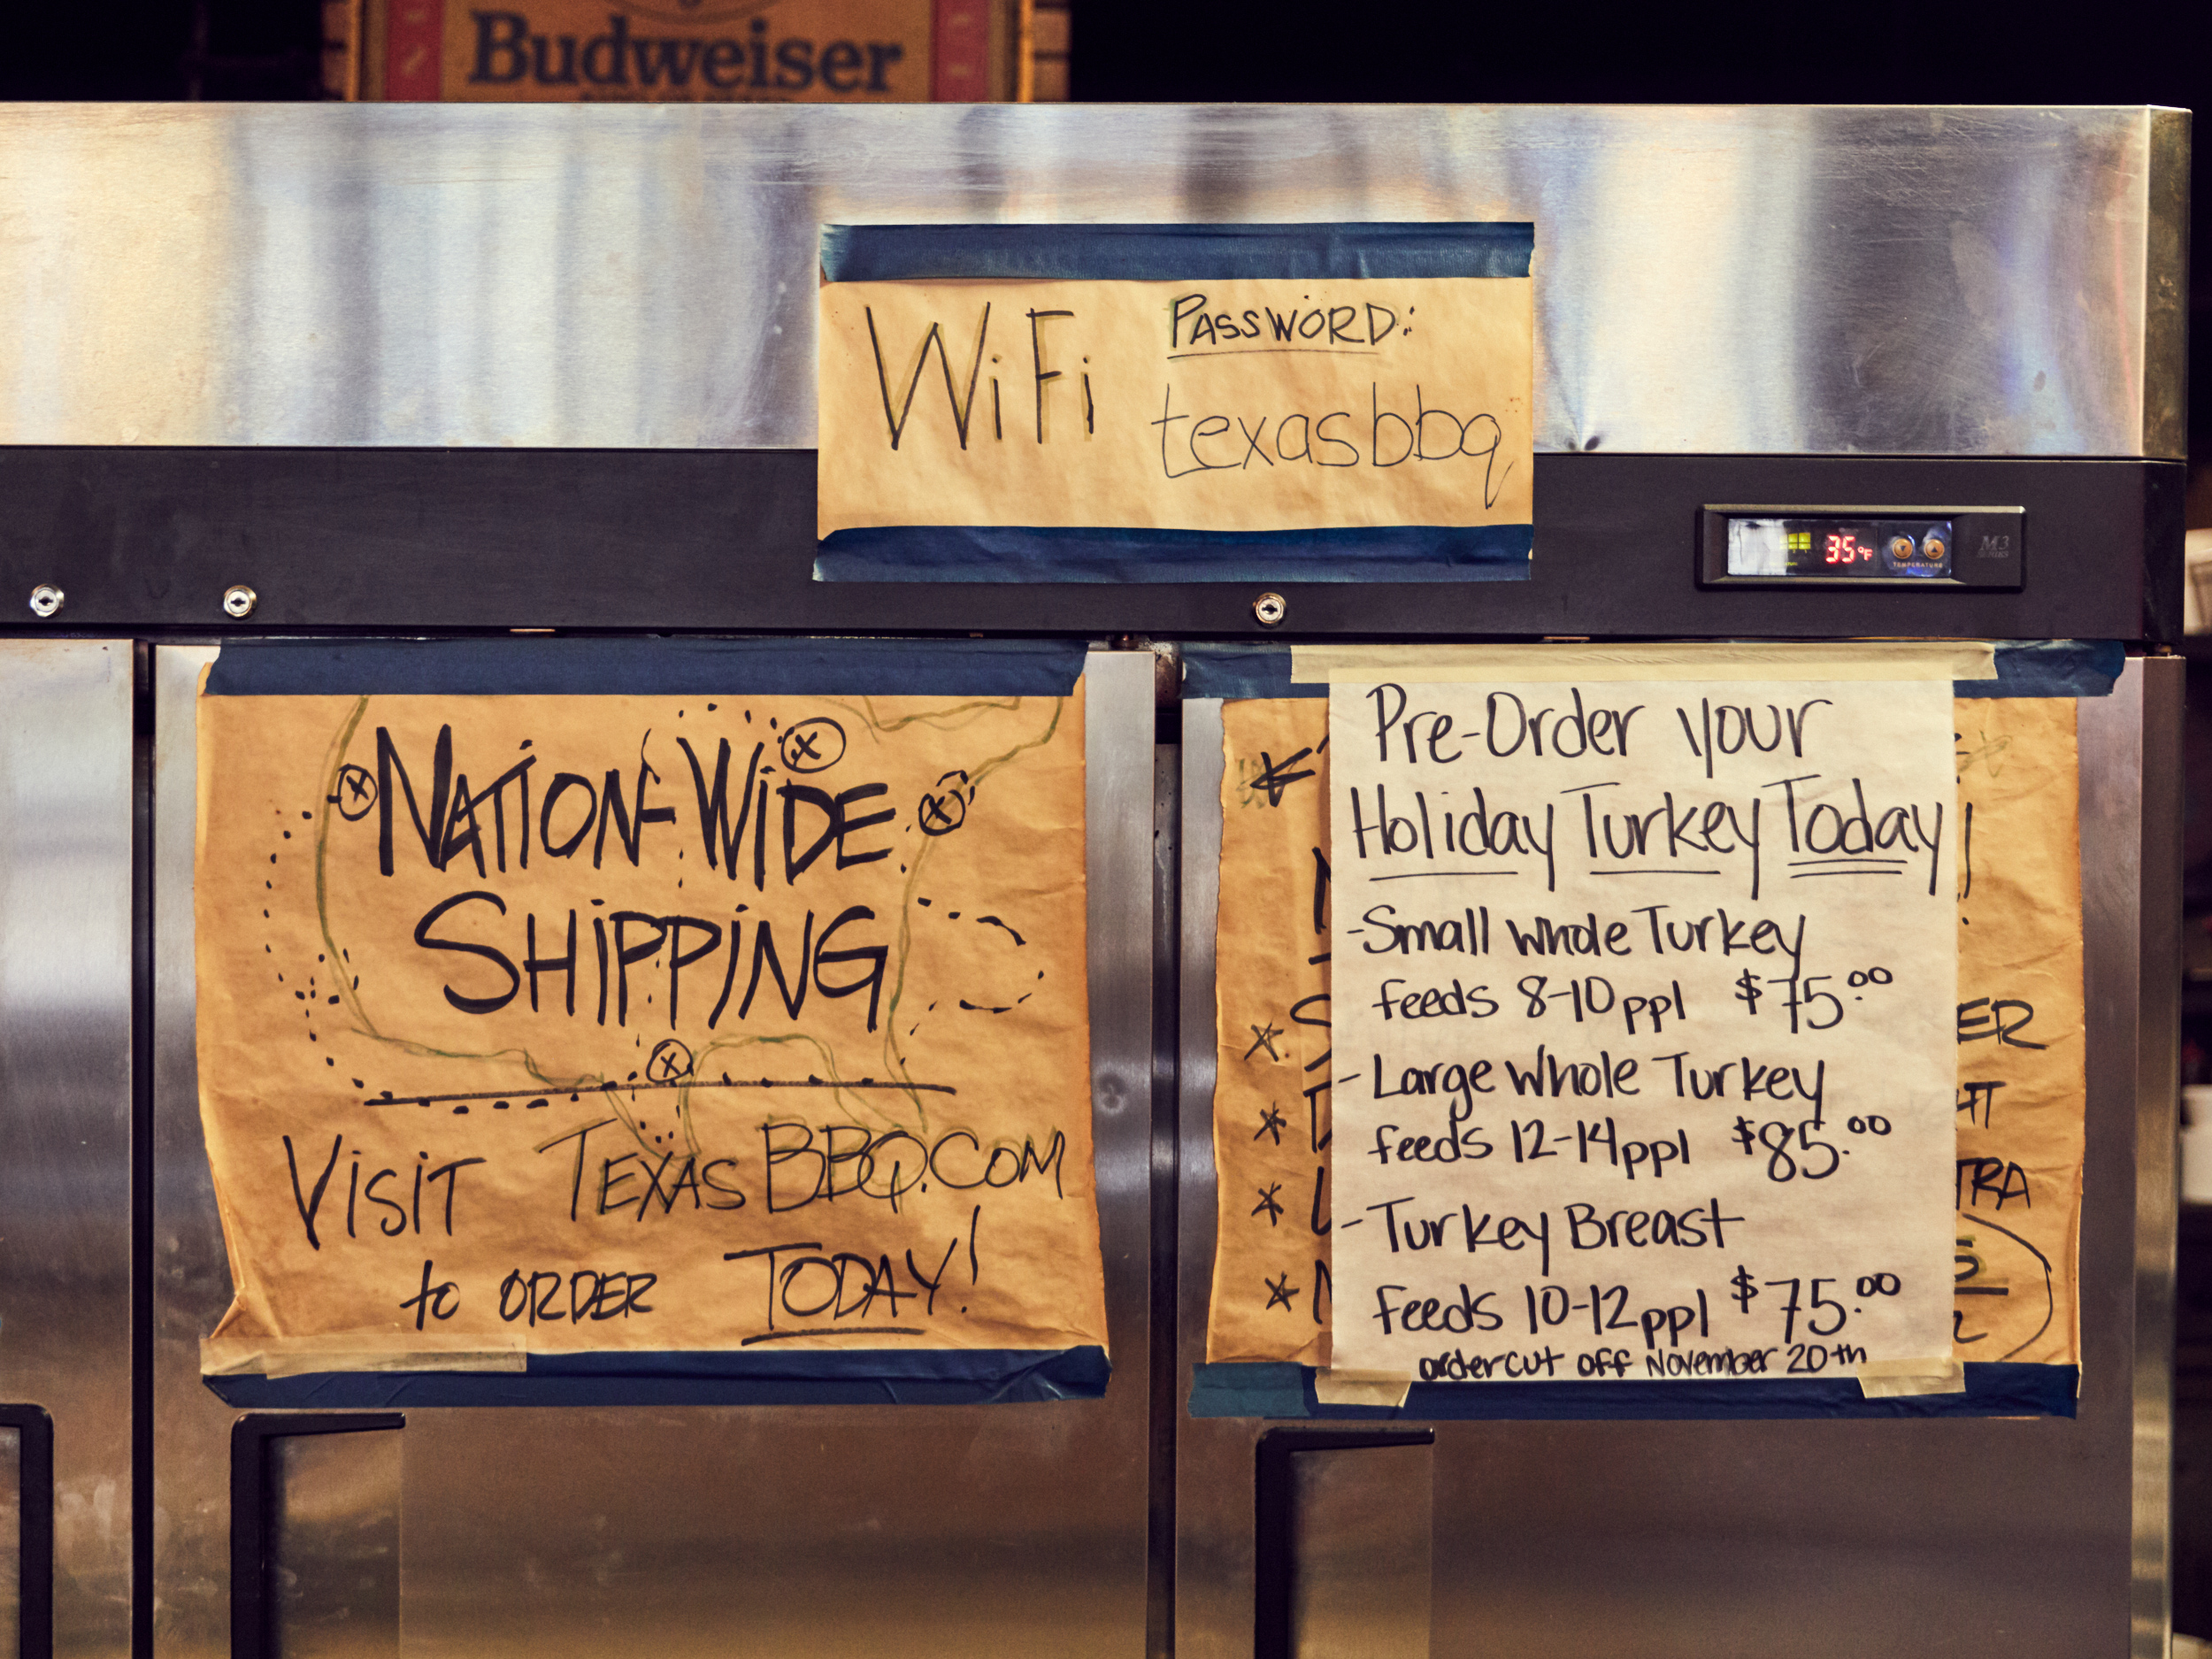 Budweiser
WiFi
PASSWORD:
texasbbq
35°F
TEMPERATURE
M3
SERIES
NATION-WIDE
SHIPPING
VISIT TEXASBBQ.COM
to ORDER TODAY!
Pre-Order your
Holiday Turkey Today!
-Small whole Turkey
feeds 8-10ppl $75.00
-Large whole Turkey
feeds 12-14ppl $85.00
-Turkey Breast
feeds 10-12ppl $75.00
order cut off November 20th